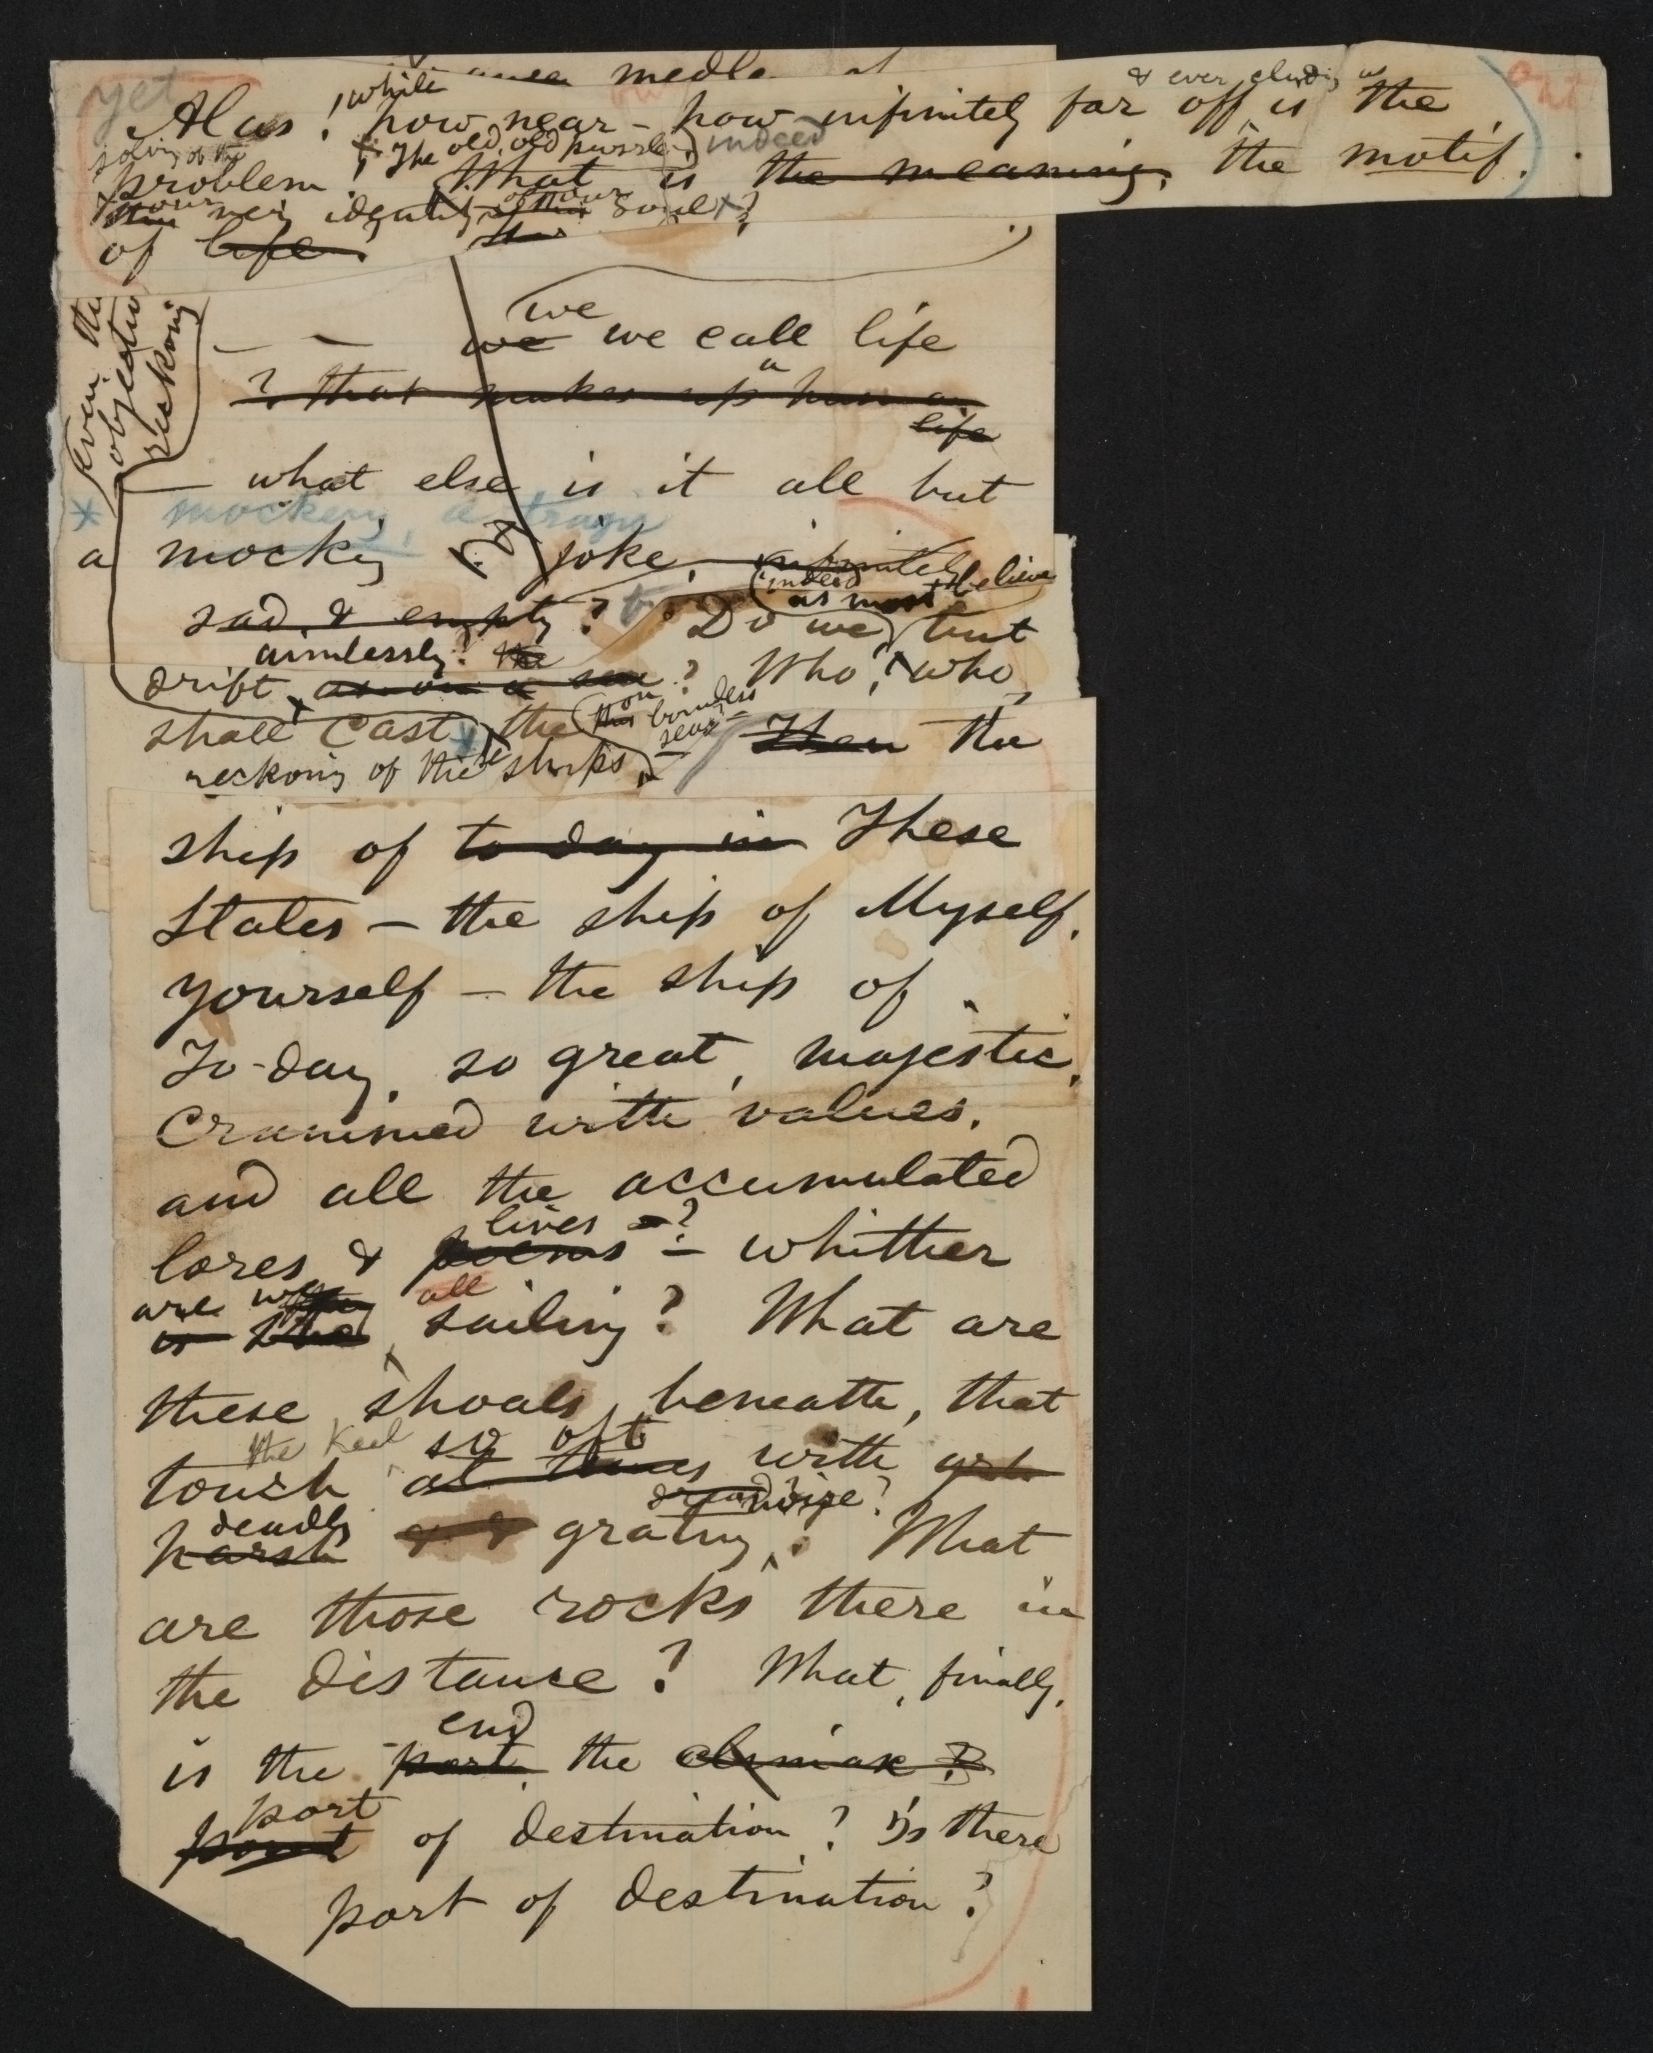 medle
yet
while & ever eluding us
Alas! how near – how infinitely far off is the
out
solving of the
The old, old puzzle indeed
problem! What is the meaning, the motif.
our of our
very identity soul?
of life
Even the
objective
reckoning
we
– – we we call life
? that makes up a
life
– what else is it all but
mockery, a trap
a mocky joke, infinitely
indeed
as most believe
sad, & empty? Do we but
aimlessly? the
drift as on a sea? Who, who
on boundless
seas –
shall cast the this Then the
reckoning of these ships
ship of to day in These
States – the ship of Myself,
yourself – the ship of
To-day, so great, majestic,
crammed with values,
and all the accumulated
lives – ?
lores & poems – whither
are we all
is she sailing? What are
these shoals beneath, that
the keel so oft
touch at times with
dread noise?
deadly
harsh & grating? What
are those rocks there in
the distance? What, finally,
end
is the port, the climax?
port
point of destination? Is there
port of destination?